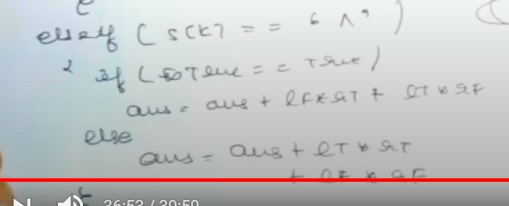 else if (s[k] == '^')
{ if (isTrue == true)
ans = ans + lF*rT + lT*rF
else
ans = ans + lT*rT
+ lF*rF
36:53 / 39:59